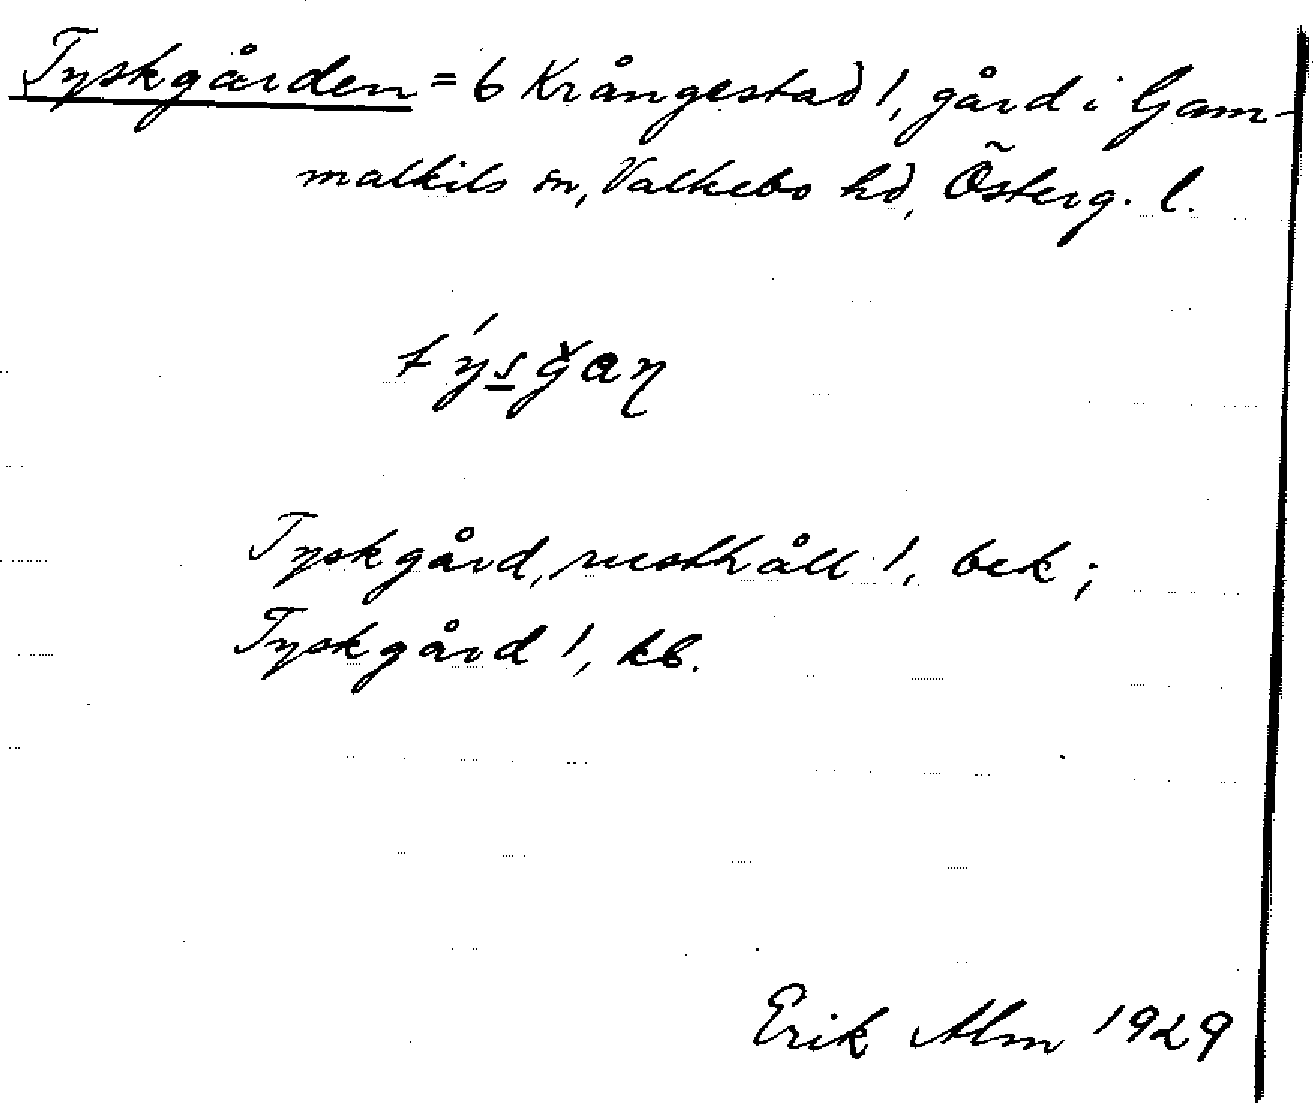 Tyskgården = 6 Krångestad 1, gård i Gam-
malkils sn, Valkebo hd, Österg. l.
Tyskgård, rusthåll 1, bek;
Tyskgård 1, kb.
Erik Alm 1929